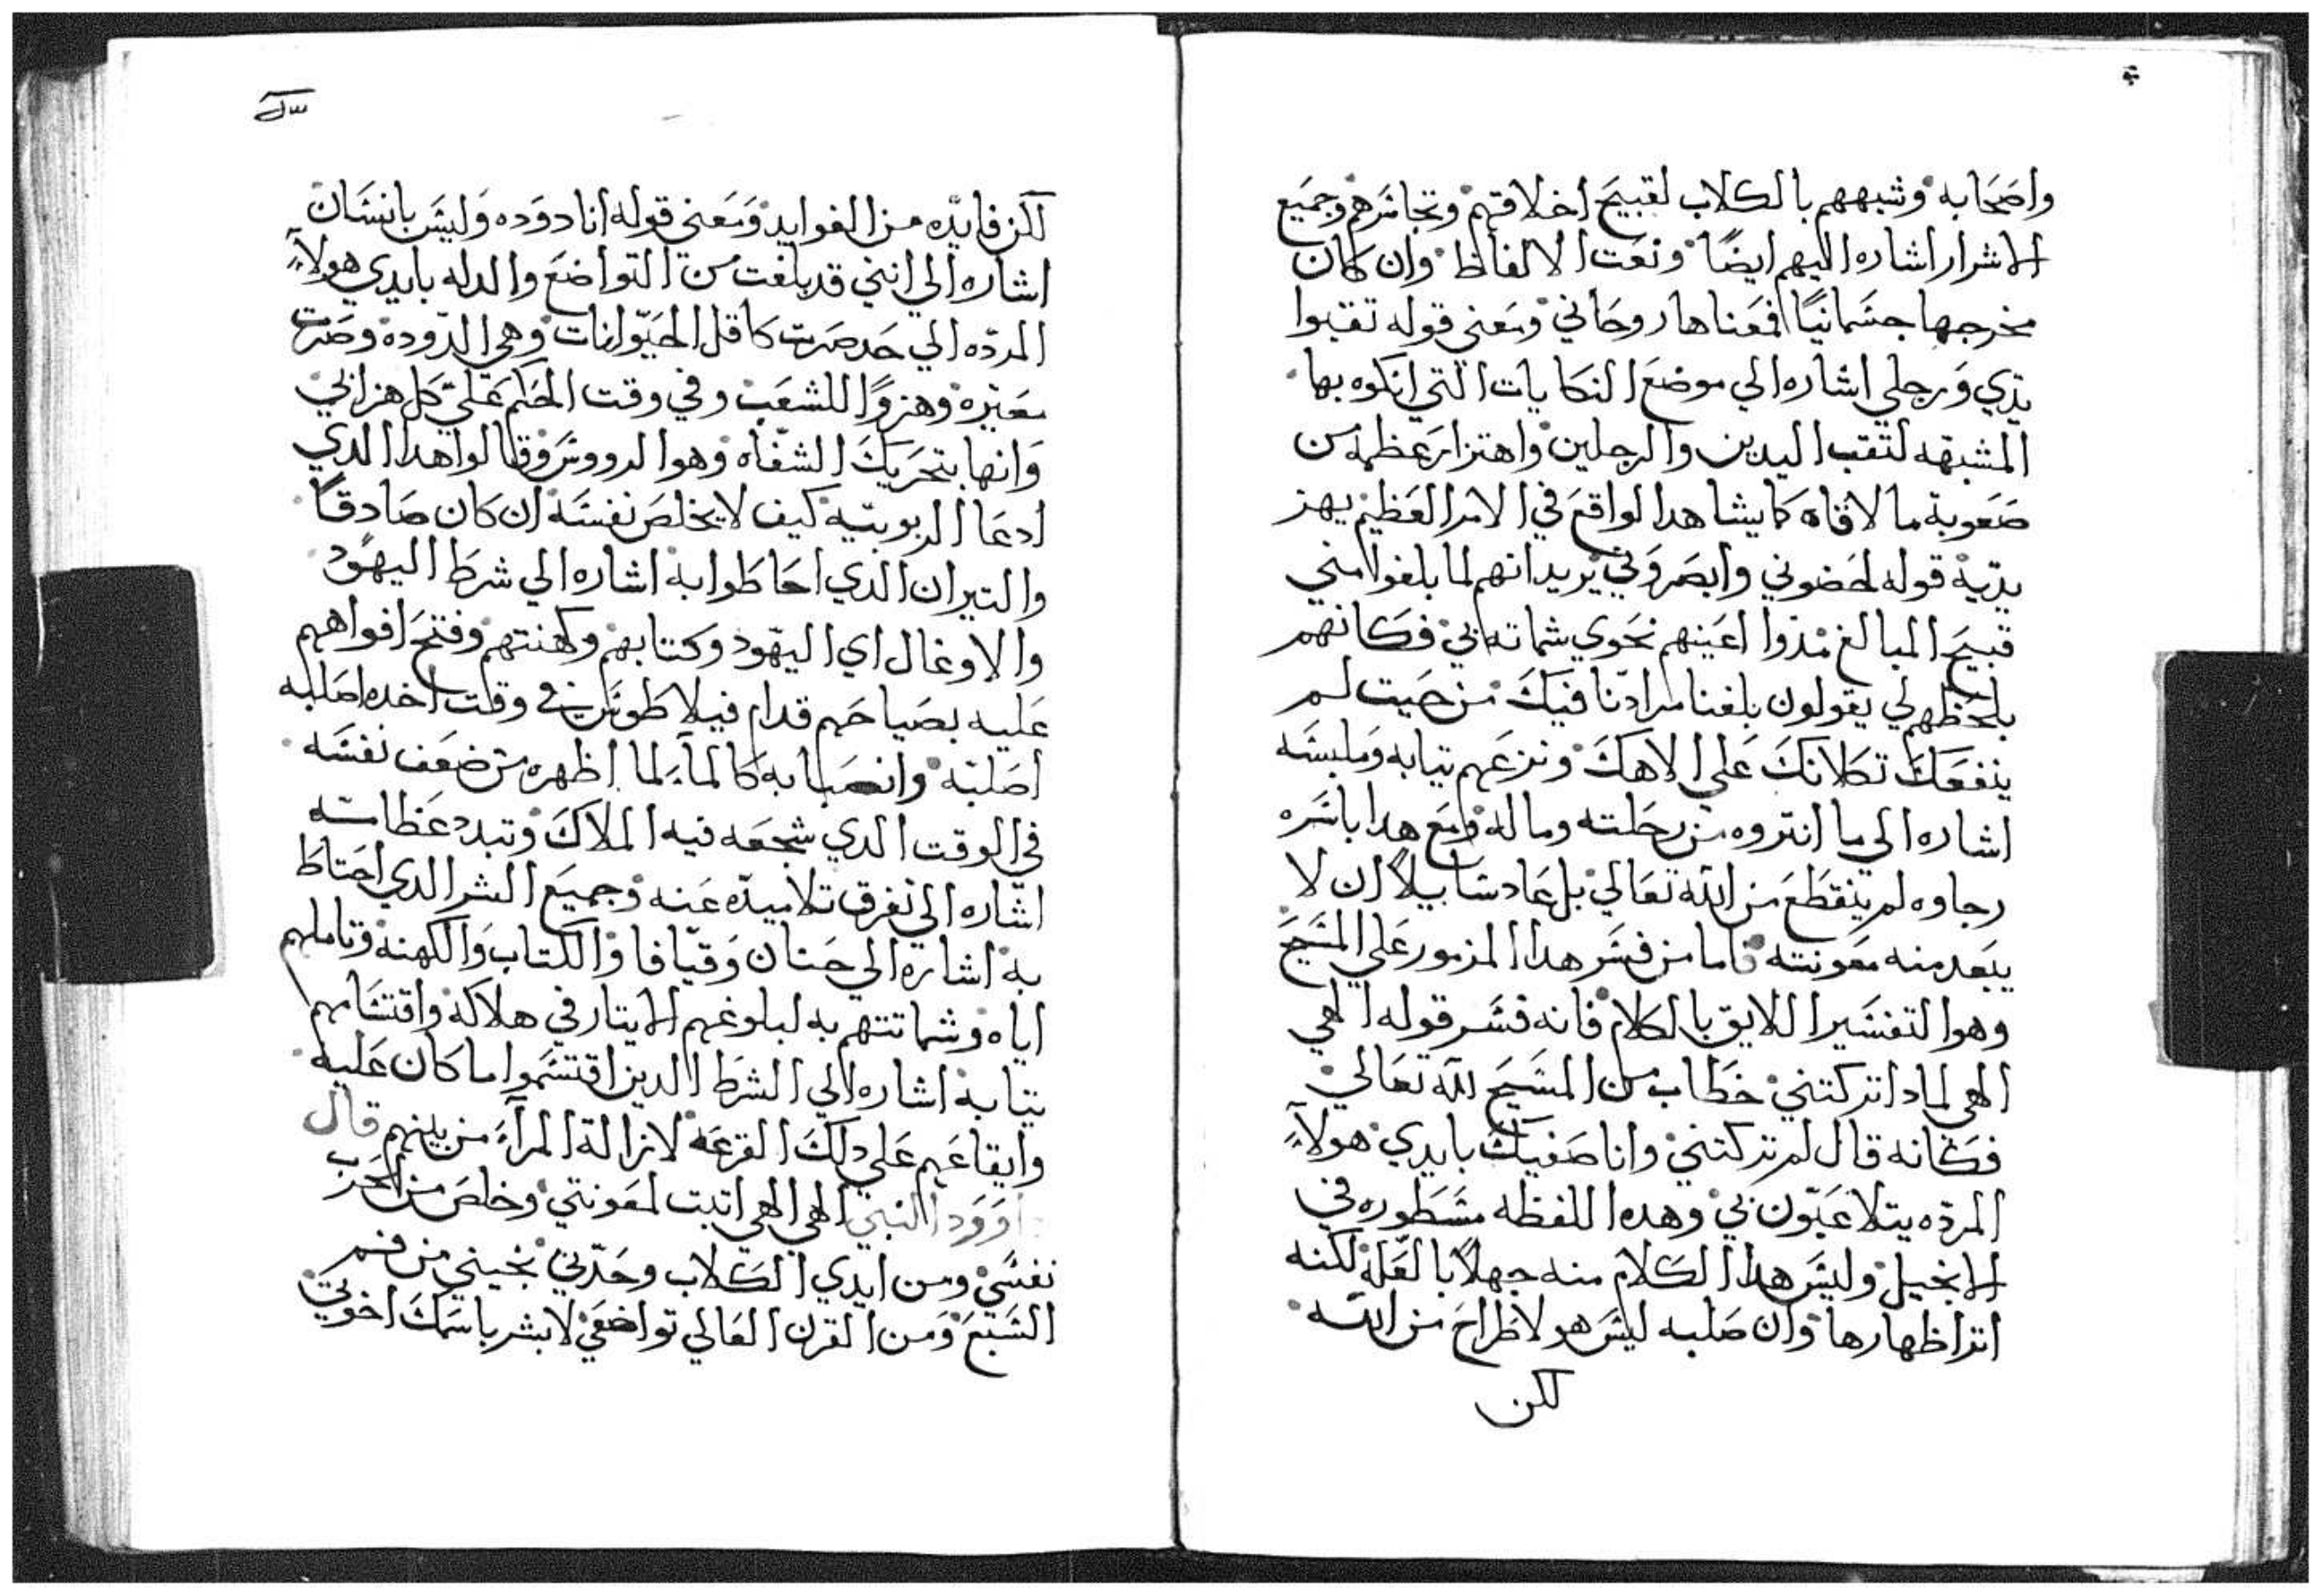 واصحابه وشبههم بالكلاب لقبيح اخلاقهم وتجاسرهم وجميع
الاشرار اشاره اليهم ايضًا ونعت الالفاظ وان كان
مخرجها جسمانيًا فمعناها روحاني ومعني قوله تقبوا
يدي ورجلي اشاره الي موضع النكايات التي انكوه بها
المشبهه لتقب اليدين والرجلين واهتزاز عظمه من
صعوبة ما لاقاه كما يشاهد الواقع في الامر العظيم يهز
يديه قوله لحضوني وابصروني يريد انهم لما بلغوا مني
قبيح المبالغ مدوا اعينهم نحوي شماته بي فكانهم
بلحظهم لي يقولون بلغنا مرادنا فيك من حيت لم
ينفعك تكلانك علي الاهك ونزعهم تيابه وملبسه
اشاره الي ما انتروه من رحلته وماله ومع هدا باسره
رجاوه لم ينقطع من الله تعالي بل عاد سايلًا ان لا
يبعد منه معونته فاما من فسر هدا المزمور علي المسيح
وهو التفسير اللايق بالكلام فانه فسر قوله الهي
الهي لمادا تركتني خطاب من المسيح لله تعالي
فكانه قال لم تركتني وانا صفيك بايدي هولآء
المرده يتلاعبون بي وهده اللفظه مسطوره في
الانجيل وليس هدا الكلام منه جهلًا بالعله لكنه
اترا ظهارها وان صلبه ليس هو لاطراح من الله
لكن
لكن فايده من الفوايد ومعني قوله انا دوده وليس بانسان
اشاره الي انني قد بلغت من التواضع والدله بايدي هولآء
المرده الي حد صرت كاقل الحيوانات وهي الدوده وصرت
معيره وهزوًا للشعب وفي وقت الحكم علي كل هزا بي
وانها بتحريك الشفاه وهو الرووس وقالوا هدا الدي
ادعا الربوبيه كيف لا يخلص نفسه ان كان صادقًا
والتيران الدي احاطوا به اشاره الي شرط اليهود
والاوغال اي اليهود وكتابهم وكهنتهم وفتح افواههم
عليه بصياحهم قدام فيلاطوس في وقت اخده اصلبه
اصلبه وانصبابه كالمآء لما اظهره من ضعف نفسه
في الوقت الدي شجعه فيه الملاك وتبدد عظامه
اشاره الي تفرق تلاميده عنه وجميع الشر الدي احتاط
به اشاره الي حنان وقيافا والكتاب والكهنه وتاملهم
اياه وشماتتهم به لبلوغهم الايتار في هلاكه واقتسامهم
تيابه اشاره الي الشرط الدين اقتسموا ما كان عليه
وايقاعهم علي دلك القرعه لازالة المرآء من بينهم قال
داوود النبي الهي الهي اتيت لمعونتي وخلص من الحرب
نفسي ومن ايدي الكلاب وحدتي نجيني من فم
السبع ومن القرن العالي تواضعي لابشر باسمك اخوتي